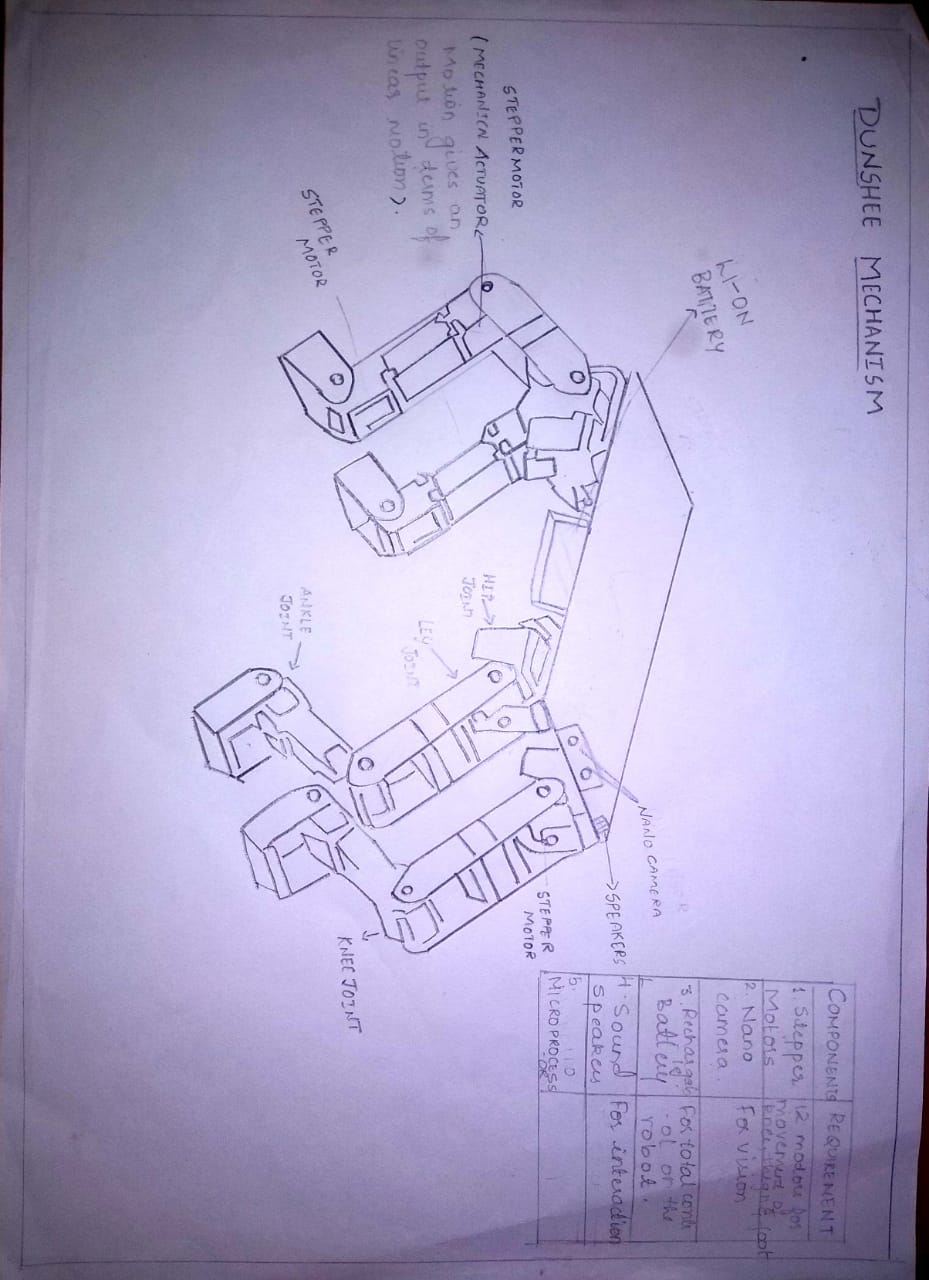 DUNSHEE MECHANISM
COMPONENTS REQUIREMENT
1. Stepper
Motors
12 motors for
movement of
knee, thigh & foot
2. Nano
camera.
For vision
3. Rechargab
le
Battery
For total contr
-ol or the
robot.
4. Sound
Speakers
For interaction
5.
MICROPROCESS
-OR
LI-ON
BATTERY
NANO CAMERA
SPEAKERS
STEPPER
MOTOR
STEPPERMOTOR
(MECHANICAL ACTUATOR
Motion gives an
output in terms of
linear motion).
HIP
JOINT
LEG
JOINT
KNEE JOINT
STEPPER
MOTOR
ANKLE
JOINT